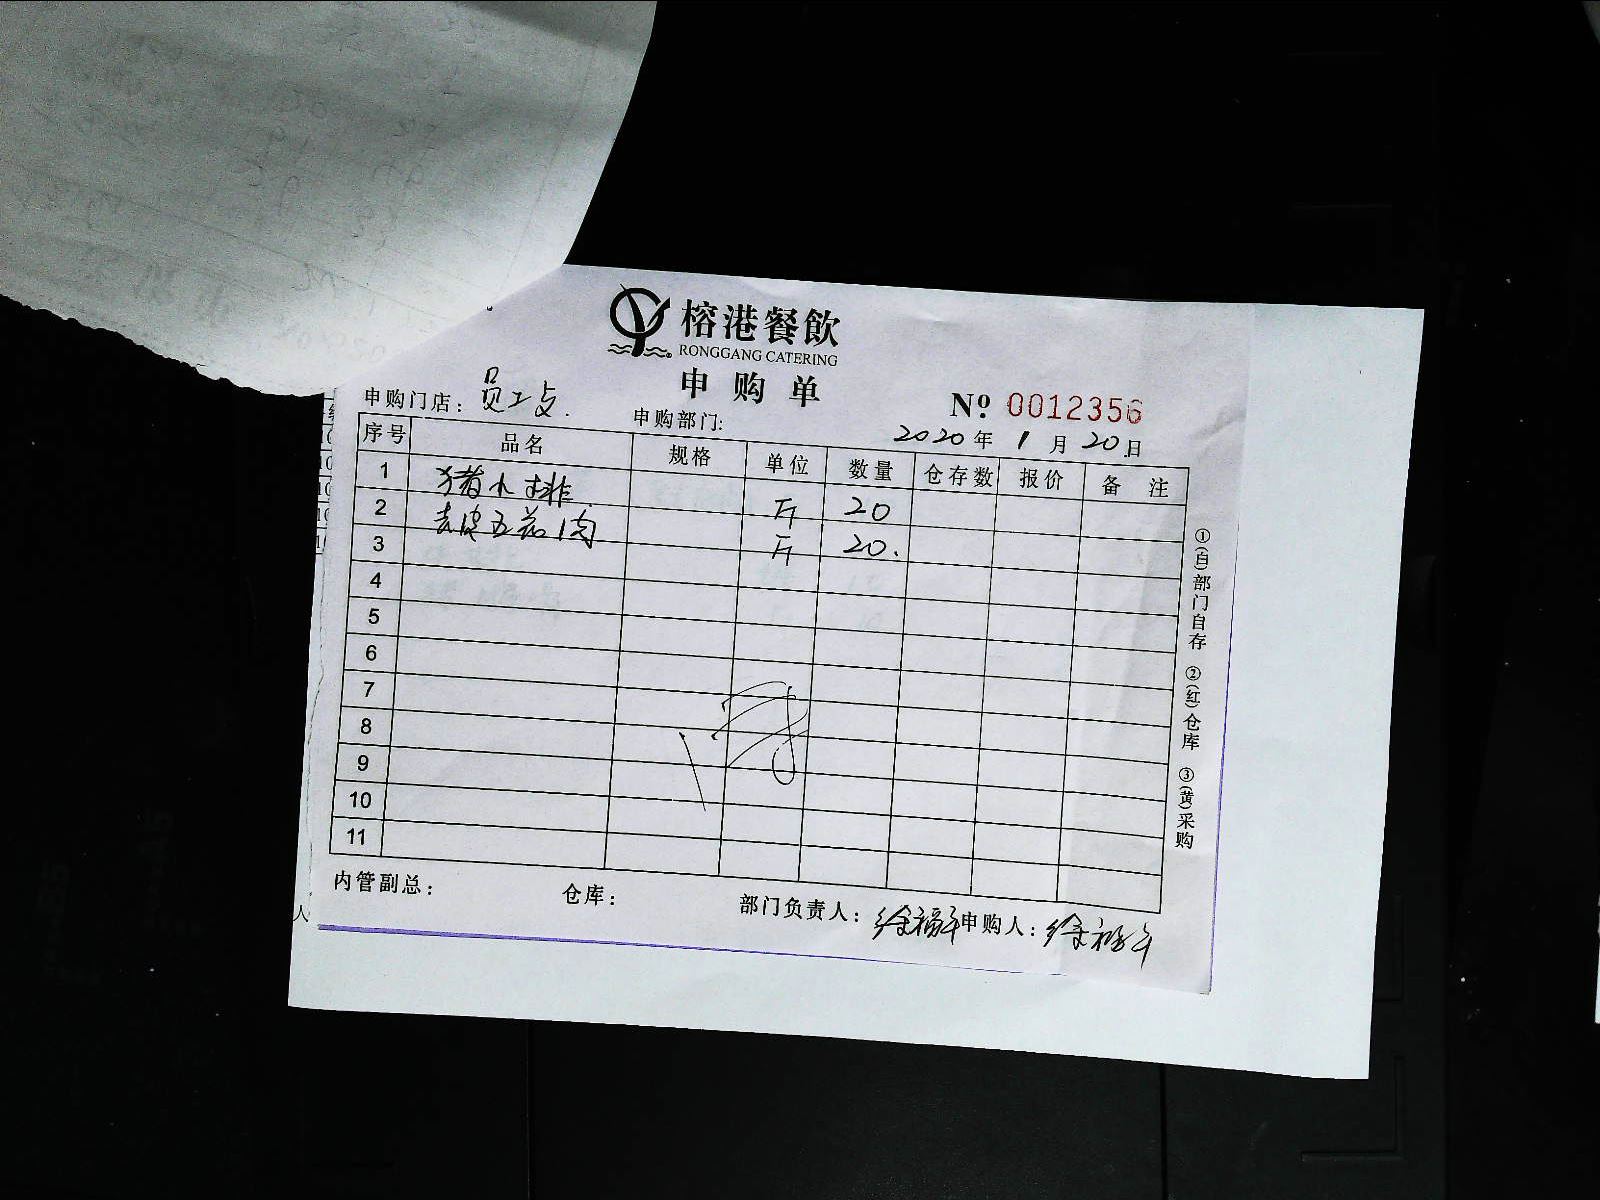 榕港餐飲
RONGGANG CATERING
申购单
申购门店： 员工 申购部门: № 0012356
2020年 1月 20日
序号 品名 规格 单位 数量 仓存数 报价 备注
1 猪小排 斤 20
2 去皮五花肉 斤 20.
3
4
5
6
7
8
9
10
11
①(白)部门自存 ②(红)仓库 ③(黄)采购
内管副总： 仓库： 部门负责人： 申购人：